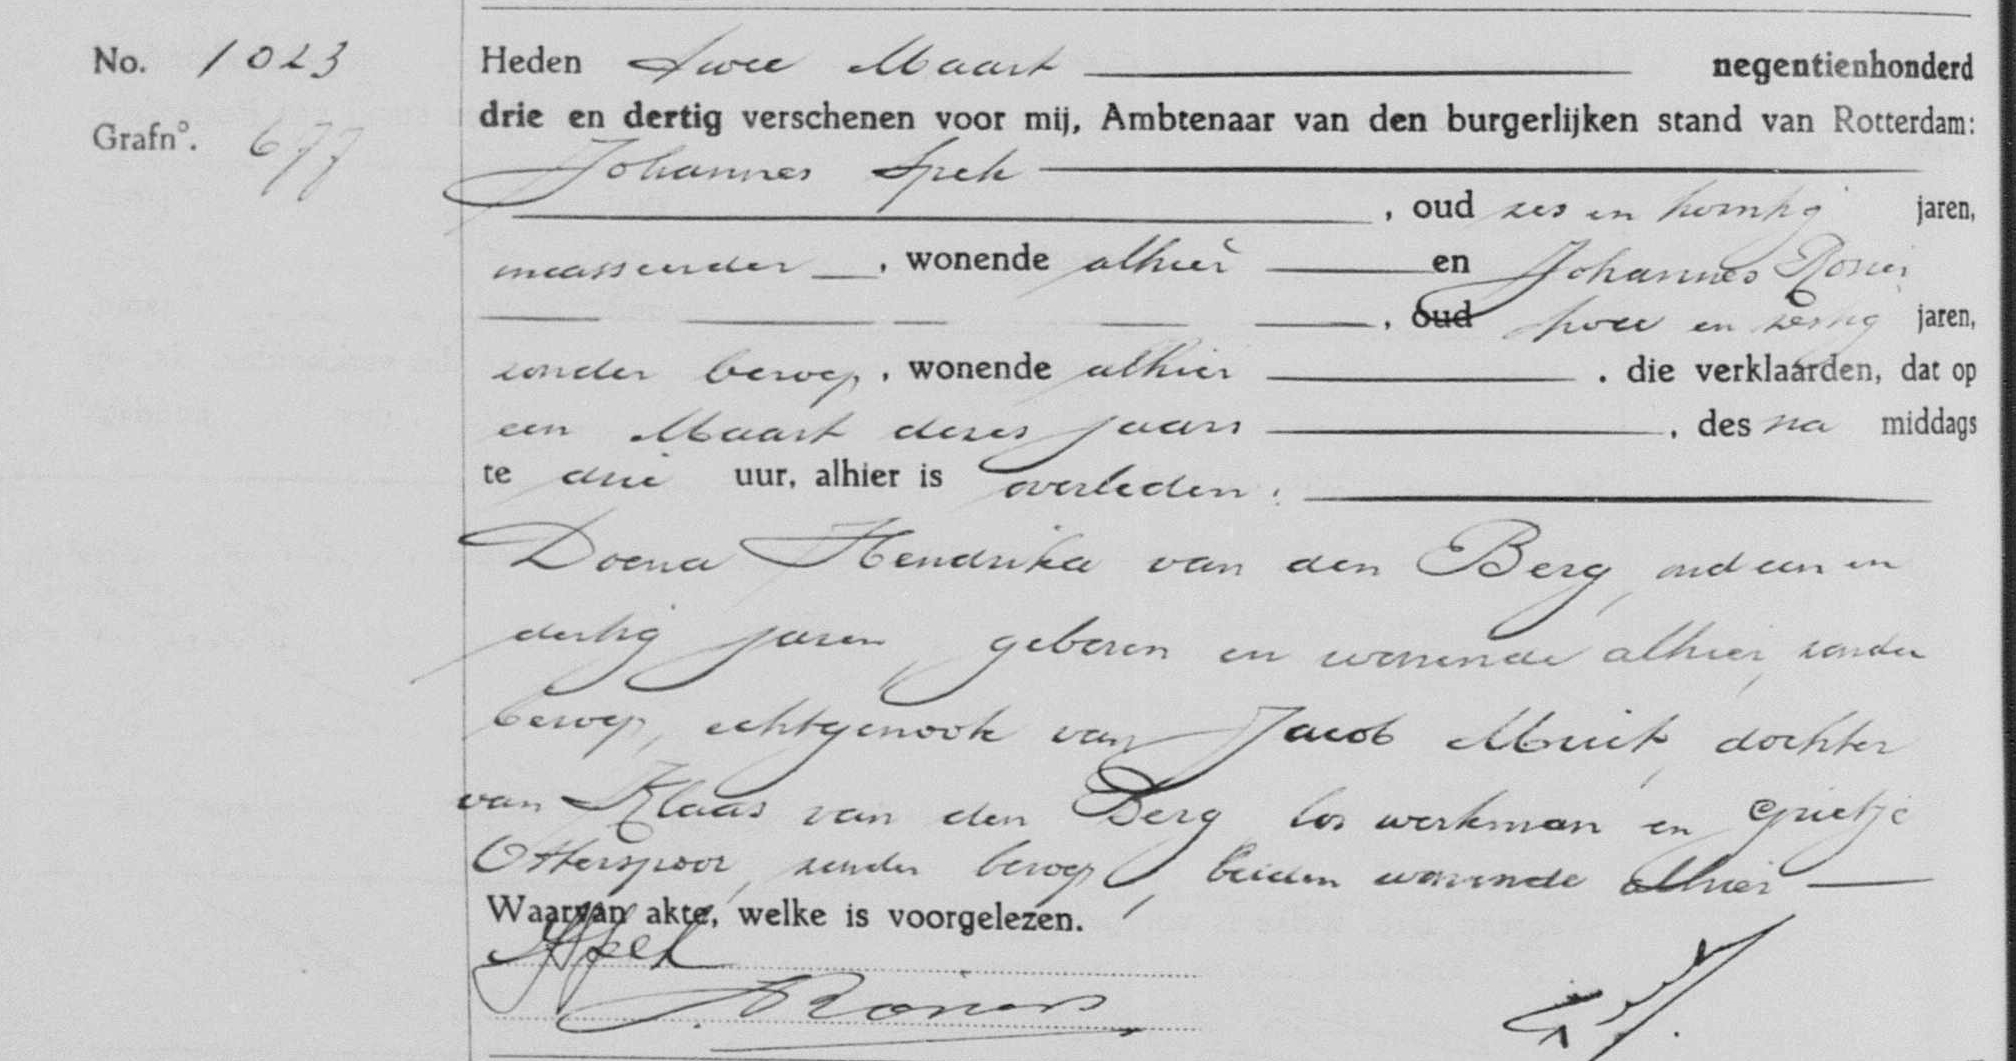 No. 1023
Heden twee Maart negentienhonderd
drie en dertig verschenen voor mij, Ambtenaar van den burgerlijken stand van Rotterdam:
Grafn°. 677
Johannes Spek
, oud zes en jaren,
, wonende alhier en Johannes
, oud twee en zestig jaren,
zonder beroep, wonende alhier . die verklaarden, dat op
een Maart dezes jaars , des na middags
te drie uur, alhier is overleden:
Doena Hendrika van den Berg, oud een en
dertig jaren, geboren en wonende alhier, zonder
beroep, echtgenoote van Jacob Muit, dochter
van Klaas van den Berg los werkman en Grietje
Otterspoor, zonder beroep, beiden wonende alhier
Waarvan akte, welke is voorgelezen.
JSpek